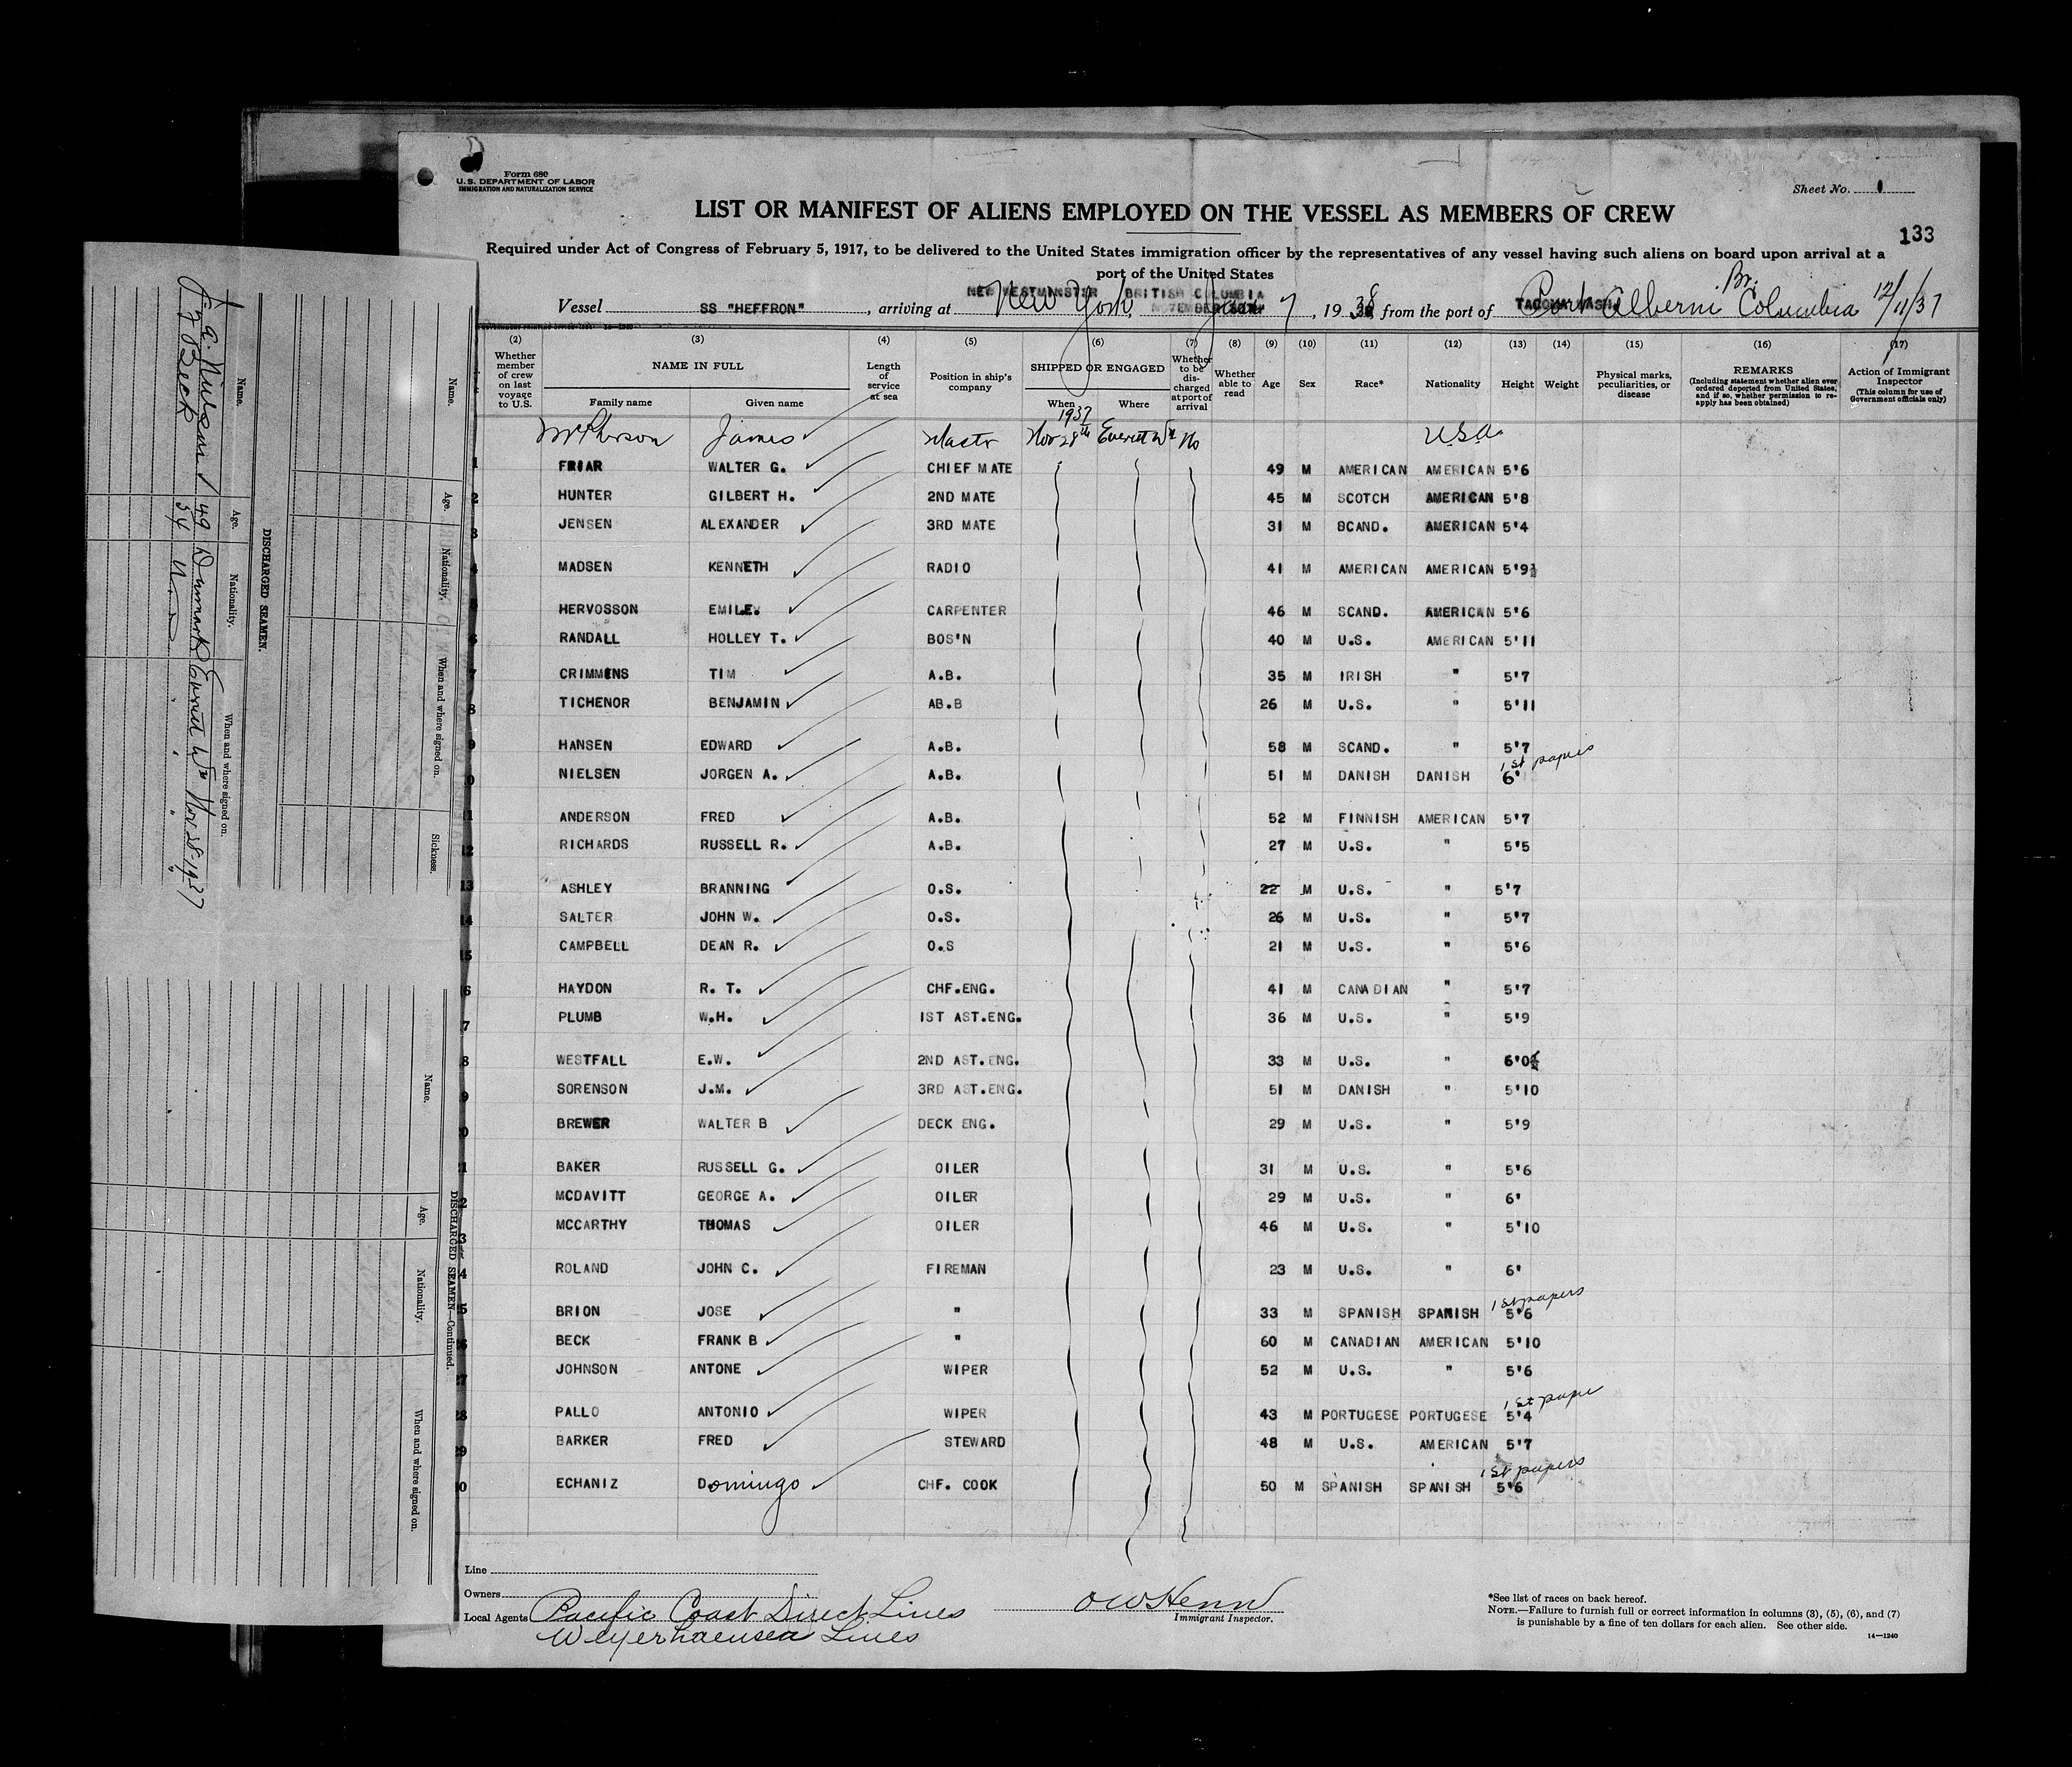 Form 680
U. S. DEPARTMENT OF LABOR
IMMIGRATION AND NATURALIZATION SERVICE
Sheet No. 1
LIST OR MANIFEST OF ALIENS EMPLOYED ON THE VESSEL AS MEMBERS OF CREW
133
Required under Act of Congress of February 5, 1917, to be delivered to the United States immigration officer by the representatives of any vessel having such aliens on board upon arrival at a
port of the United States
NEW WESTMINSTER BRITISH COLUMBIA
Vessel SS "HEFFRON", arriving at New York, Jan 7, 1938 from the port of Port Alberni Br. Columbia 12/11/37
(2) (3) (4) (5) (6) (7) (8) (9) (10) (11) (12) (13) (14) (15) (16) (17)
Whether member of crew on last voyage to U.S.
NAME IN FULL
Family name Given name
Length of service at sea
Position in ship's company
SHIPPED OR ENGAGED
When Where
Whether to be discharged at port of arrival
Whether able to read
Age Sex Race* Nationality Height Weight
Physical marks, peculiarities, or disease
REMARKS
(Including statement whether alien ever ordered deported from United States, and if so, whether permission to reapply has been obtained)
Action of Immigrant Inspector
(This column for use of Government officials only)
1937
McPherson James Master Nov 28th Everett Wn No U.S.A.
1 FRIAR WALTER G. CHIEF MATE 49 M AMERICAN AMERICAN 5'6
2 HUNTER GILBERT H. 2ND MATE 45 M SCOTCH AMERICAN 5'8
3 JENSEN ALEXANDER 3RD MATE 31 M BCAND. AMERICAN 5'4
4 MADSEN KENNETH RADIO 41 M AMERICAN AMERICAN 5'9½
5 HERVOSSON EMILE. CARPENTER 46 M SCAND. AMERICAN 5'6
6 RANDALL HOLLEY T. BOS'N 40 M U.S. AMERICAN 5'11
7 CRIMMENS TIM A.B. 35 M IRISH " 5'7
8 TICHENOR BENJAMIN AB.B 26 M U.S. " 5'11
9 HANSEN EDWARD A.B. 58 M SCAND. " 5'7
0 NIELSEN JORGEN A. A.B. 51 M DANISH DANISH 6' 1st papers
11 ANDERSON FRED A.B. 52 M FINNISH AMERICAN 5'7
12 RICHARDS RUSSELL R. A.B. 27 M U.S. " 5'5
13 ASHLEY BRANNING O.S. 22 M U.S. " 5'7
14 SALTER JOHN W. O.S. 26 M U.S. " 5'7
15 CAMPBELL DEAN R. O.S 21 M U.S. " 5'6
6 HAYDON R. T. CHF.ENG. 41 M CANADIAN " 5'7
7 PLUMB W.H. 1ST AST.ENG. 36 M U.S. " 5'9
8 WESTFALL E.W. 2ND AST.ENG. 33 M U.S. " 6'0½
9 SORENSON J.M. 3RD AST.ENG. 51 M DANISH " 5'10
0 BREWER WALTER B DECK ENG. 29 M U.S. " 5'9
1 BAKER RUSSELL G. OILER 31 M U.S. " 5'6
2 MCDAVITT GEORGE A. OILER 29 M U.S. " 6'
3 MCCARTHY THOMAS OILER 46 M U.S. " 5'10
4 ROLAND JOHN C. FIREMAN 23 M U.S. " 6'
5 BRION JOSE " 33 M SPANISH SPANISH 5'6 1st papers
6 BECK FRANK B " 60 M CANADIAN AMERICAN 5'10
7 JOHNSON ANTONE WIPER 52 M U.S. " 5'6
28 PALLO ANTONIO WIPER 43 M PORTUGESE PORTUGESE 5'4 1st pape
29 BARKER FRED STEWARD 48 M U.S. AMERICAN 5'7
0 ECHANIZ Domingo CHF. COOK 50 M SPANISH SPANISH 5'6 1st papers
Line
Owners
Local Agents Pacific Coast Direct Lines
Weyerhaeusea Lines
OWHenn
Immigrant Inspector.
*See list of races on back hereof.
NOTE.—Failure to furnish full or correct information in columns (3), (5), (6), and (7)
is punishable by a fine of ten dollars for each alien. See other side.
14—1240
DISCHARGED SEAMEN.
Name. Age. Nationality. When and where signed on.
49 Denmark Everett Wn Nov 28-1937
Beck 54
Name. Age. Nationality. When and where signed on. Sickness.
DISCHARGED SEAMEN—Continued.
Name. Age. Nationality. When and where signed on.